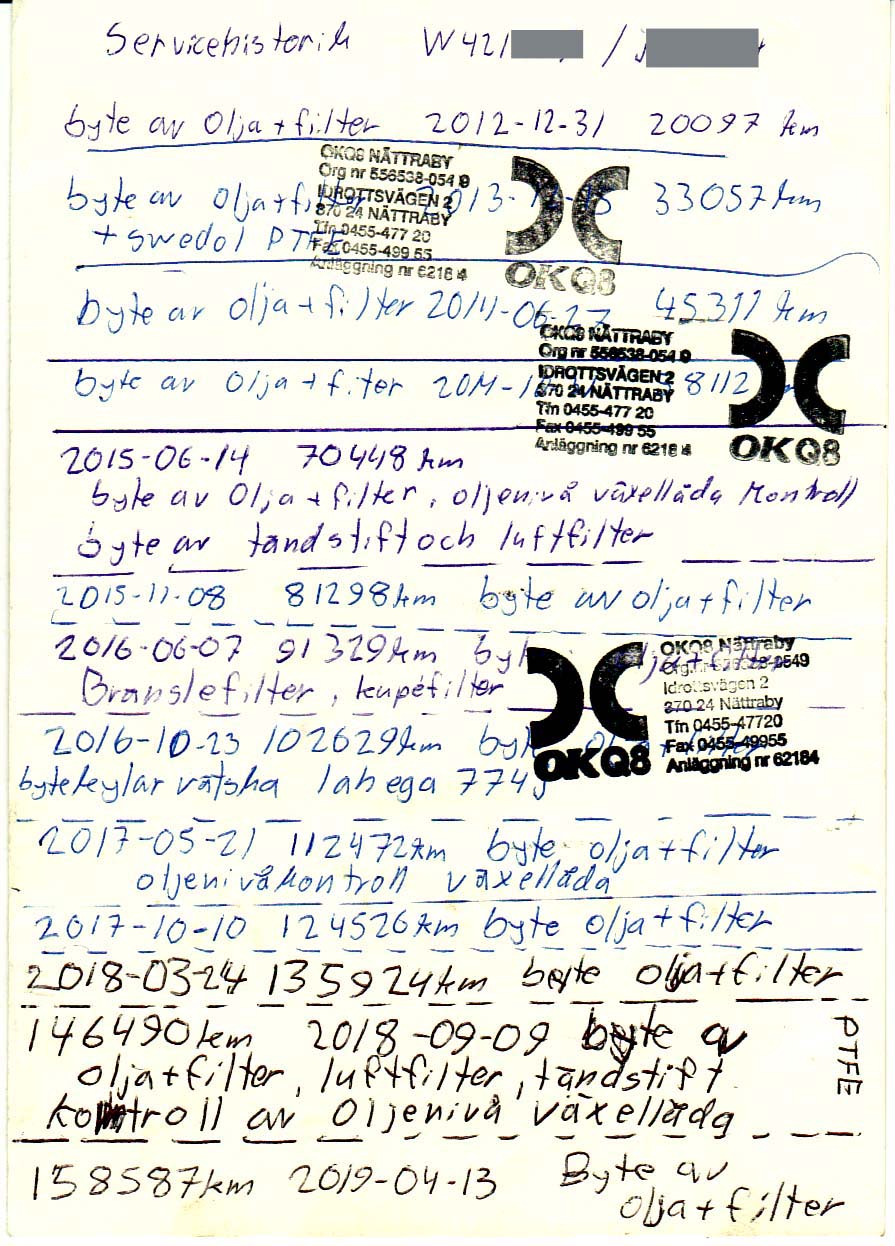 Servicehistorik W421 /
byte av olja + filter 2012-12-31 20097 km
OKQ8 NÄTTRABY
Org nr 556538-054 9
IDROTTSVÄGEN 2
370 24 NÄTTRABY
Tfn 0455-477 20
Fax 0455-499 55
Anläggning nr 6218 4
OKQ8
byte av olja + filter 2013-12-15 33057 km
+ swedol PTFE
byte av olja + filter 2014-06-27 45311 km
OKQ8 NÄTTRABY
Org nr 556538-054 9
IDROTTSVÄGEN 2
370 24 NÄTTRABY
Tfn 0455-477 20
Fax 0455-499 55
Anläggning nr 6218 4
OKQ8
byte av olja + filter 8112
2015-06-14 70448 km
byte av olja + filter, oljenivå växellåda kontroll
byte av tändstift och luftfilter
2015-11-08 81298 km byte av olja + filter
2016-06-07 91329 km byte olja + filter
Bränslefilter, kupéfilter
OKQ8 Nättraby
Org.nr 556538-0549
Idrottsvägen 2
370 24 Nättraby
Tfn 0455-47720
Fax 0455-49955
Anläggning nr 62184
OKQ8
2016-10-23 102629 km byte olja + filter
byte kylar vätska lahega 774
2017-05-21 112472 km byte olja + filter
oljenivåkontroll växellåda
2017-10-10 124526 km byte olja + filter
2018-03-24 135924 km byte olja + filter
146490 km 2018-09-09 byte a
PTFE
olja + filter, luftfilter, tändstift
kontroll av oljenivå växellåda
158587 km 2019-04-13 Byte av
olja + filter